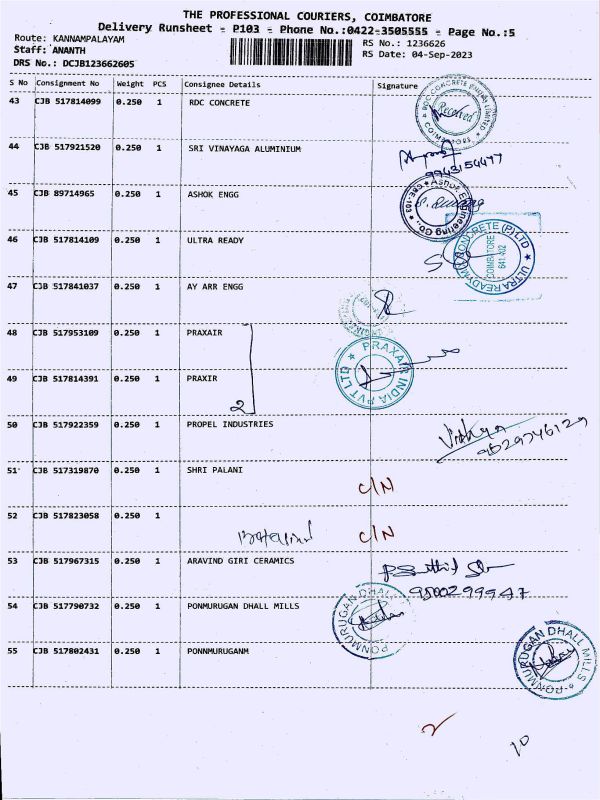 THE PROFESSIONAL COURIERS, COIMBATORE
Delivery Runsheet - P103 - Phone No.:0422-3505555 - Page No.:5
Route: KANNAMPALAYAM
Staff: ANANTH
DRS No.: DCJB123662605
RS No.: 1236626
RS Date: 04-Sep-2023
S No Consignment No Weight PCS Consignee Details Signature
43 CJB 517814099 0.250 1 RDC CONCRETE
RDC CONCRETE (INDIA) LIMITED
Received
COIMBATORE
44 CJB 517921520 0.250 1 SRI VINAYAGA ALUMINIUM
9943154477
45 CJB 89714965 0.250 1 ASHOK ENGG
Ashok Engineering Co., CBE-103
46 CJB 517814109 0.250 1 ULTRA READY
ULTRA READYMIX CONCRETE (P) LTD
COIMBATORE
641 402
47 CJB 517841037 0.250 1 AY ARR ENGG
48 CJB 517953109 0.250 1 PRAXAIR
PRAXAIR INDIA PVT LTD
49 CJB 517814391 0.250 1 PRAXIR
2
50 CJB 517922359 0.250 1 PROPEL INDUSTRIES
Vidhya
9529746129
51 CJB 517319870 0.250 1 SHRI PALANI
C/N
52 CJB 517823058 0.250 1
C/N
53 CJB 517967315 0.250 1 ARAVIND GIRI CERAMICS
9500299947
54 CJB 517790732 0.250 1 PONMURUGAN DHALL MILLS
PONMURUGAN DHALL
55 CJB 517802431 0.250 1 PONNMURUGANM
PONMURUGAN DHALL MILLS
2
10